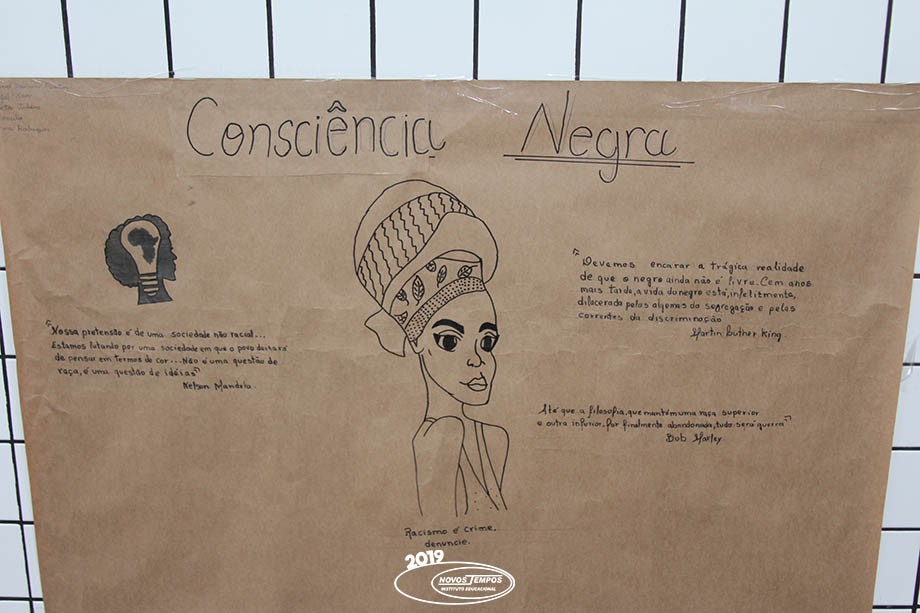 Consciência Negra
"Nossa pretensão é de uma sociedade não racial...
Estamos lutando por uma sociedade em que o povo deixará
de pensar em termos de cor...Não é uma questão de
raça, é uma questão de idéias"
Nelson Mandela.
"Devemos encarar a trágica realidade
de que o negro ainda não é livre. Cem anos
mais tarde, a vida do negro está, infelizmente,
dilacerada pelas algemas da segregação e pelas
correntes da discriminação
Martin Luther King
Até que a filosofia, que mantém uma raça superior
e outra inferior, for finalmente abandonada, tudo será guerra"
Bob Marley
Racismo é crime,
denuncie.
2019
NOVOS TEMPOS
INSTITUTO EDUCACIONAL